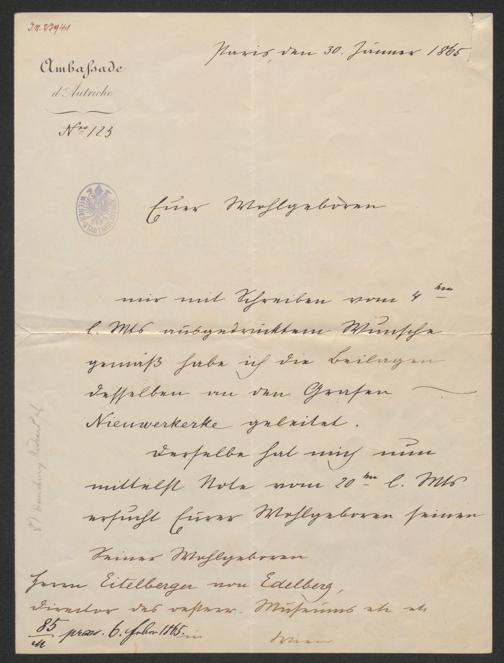 I.N. 23941
Ambassade
d'Autriche
Nro 125
Paris, den 30. Jänner 1865
Euer Wohlgeboren
mir mit Schreiben vom 4ten
l. Mts ausgedrücktem Wunsche
gemäß habe ich die Beilagen
desselben an den Grafen
Nieuwerkerke geleitet.
Derselbe hat mich nun
mittelst Note vom 20ten l. Mts
ersucht Eurer Wohlgeboren seinen
Seiner Wohlgeboren
Herrn Eitelberger von Edelberg,
Director des oesterr. Museums etc etc
in Wien
85
praes. 6. Feber 1865.